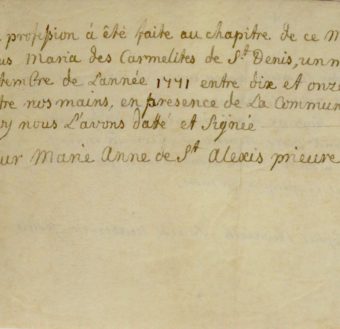 profession á été faite au chapitre de ce M
us Maria des Carmelites de St. Denis, un m
tembre de L'année 1771 entre dix et onze
tre nos mains, en presence de La Commun
nous L'avons datté et Signée
ur Marie Anne de St Alexis prieure